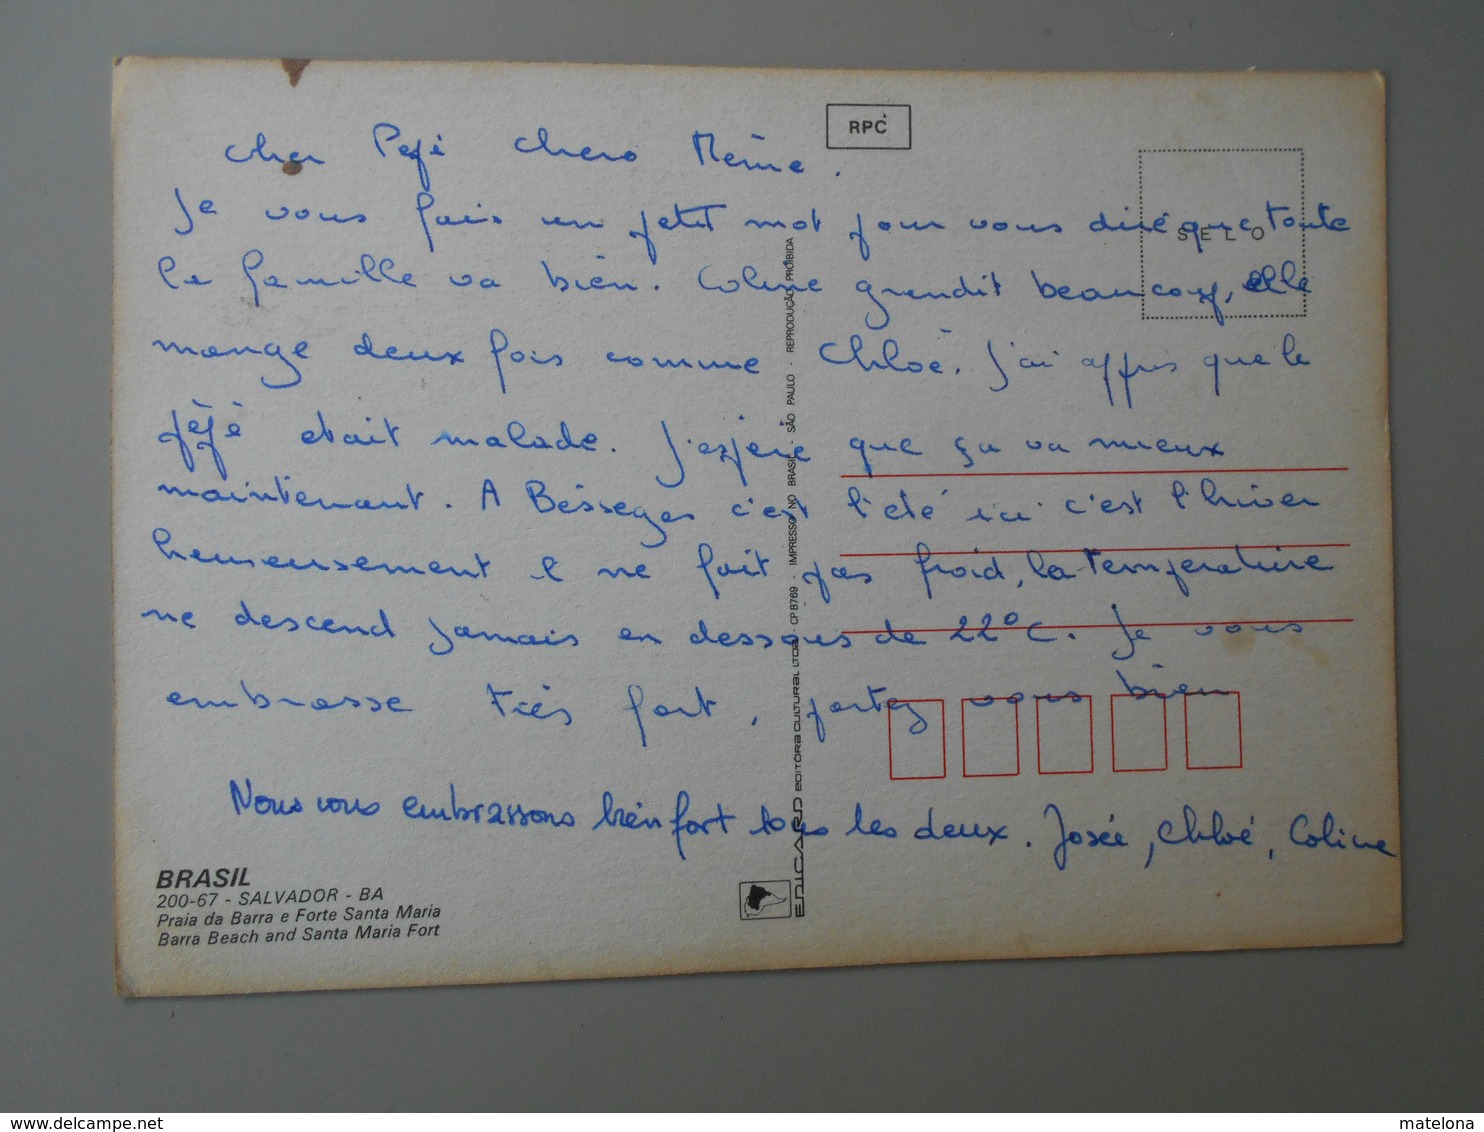 cher Pépé chere Mémé.
Je vous fais un petit mot pour vous dire que toute
la famille va bien. Coline grandit beaucoup, elle
mange deux fois comme Chloé. J'ai appris que le
pépé etait malade. J'espère que ça va mieux
maintenant. A Bésseges c'est l'été ici c'est l'hiver
heureusement il ne fait pas froid, la température
ne descend jamais en dessous de 22°C. Je vous
embrasse très fort, portez vous bien
Nous vous embrassons bien fort tous les deux. Josée, Chloé, Coline
RPC
SELO
BRASIL
200-67 - SALVADOR - BA
Praia da Barra e Forte Santa Maria
Barra Beach and Santa Maria Fort
EDICARD EDITÔRA CULTURAL LTDA - CP 8769 - IMPRESSO NO BRASIL - SÃO PAULO - REPRODUÇÃO PROIBIDA
www.delcampe.net
matelona